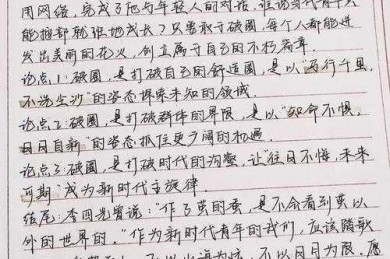 用网络，完成了他与年轻人的对话，谁说当代青年人
能循规蹈矩地成长？只要敢于破圈，每个人都能迸
发出美丽的花火，创立属于自己的不朽篇章。
论点1：破圈，是打破自己的舒适圈，是以"西行千里，
不洗尘沙"的姿态探索未知的领域。
论点2：破圈，是打破群体的界限，是以"知命不惧，
日日自新"的姿态抓住更广阔的机遇。
论点3：破圈，是打破时代的沟壑，让"往日不悔，未来
可期"成为新时代主旋律。
结尾：李四光曾说："作了茧的蚕，是不会看到茧以
外的世界的。"作为新时代青年的我们，应该踏歌
不以山海为远，不以日月为限，愿